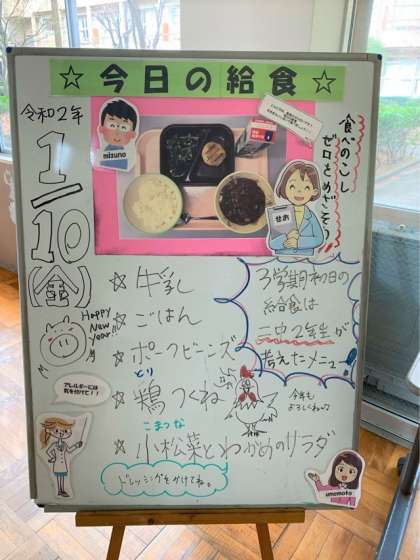 ☆今日の給食☆
令和2年
1/10
(金)
mizuno
せお
食べのこし
ゼロをめざそう
☆牛乳
☆ごはん
☆ポークビーンズ
とり
☆鶏つくね
こまつな
☆小松菜とわかめのサラダ
ドレッシングをかけてね。
3学期初日の
給食は
二中2年生が
考えたメニュー
Happy
New
year!!
アレルギーには
気を付けて!!
今年も
よろしくね
umemoto